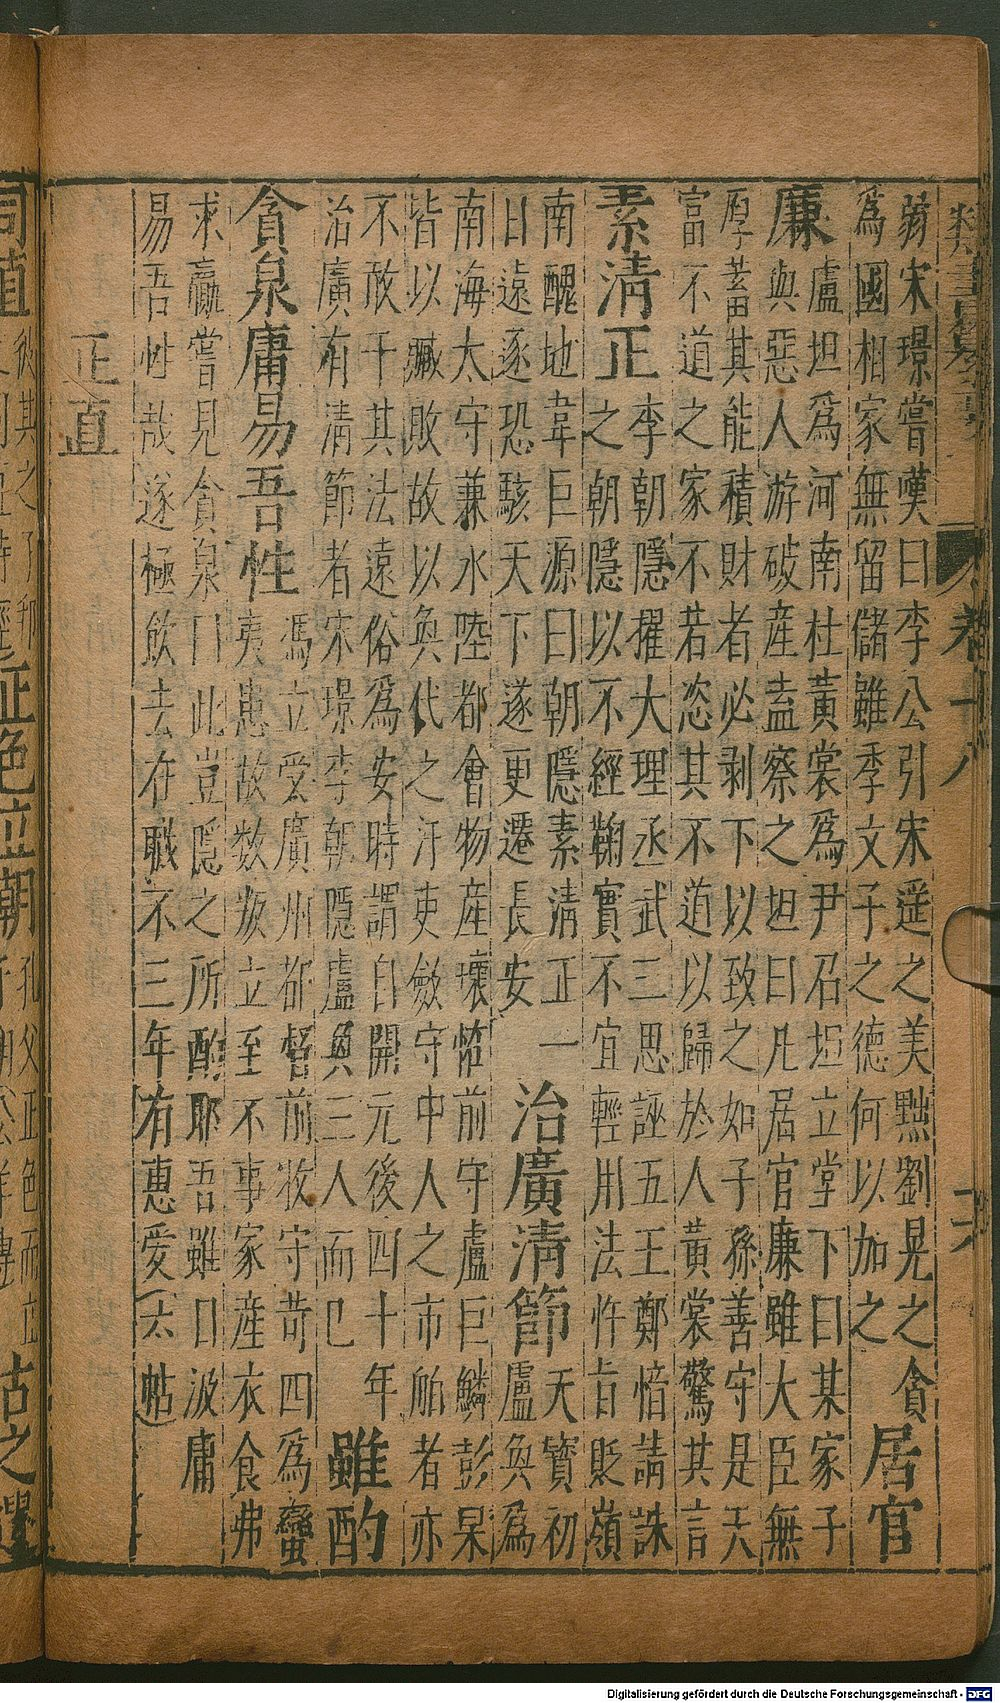 弱宋璟嘗嘆曰李公引宋遥之美黜劉晃之貪
爲國相家無留儲雖季文子之德何以加之
居官
廉
盧坦爲河南杜黃裳爲尹召坦立堂下曰某家子
與惡人游破產盍察之坦曰凡居官廉雖大臣無
厚蓄其能積財者必剥下以致之如子孫善守是天
富不道之家不若恣其不道以歸於人黃裳驚其言
素清正
李朝隱擢大理丞武三思誣五王鄭愔請誅
之朝隱以不經鞠實不宜輕用法忤旨貶嶺
南醜地韋巨源曰朝隱素清正一
日遠逐恐駭天下遂更遷長安
治廣清節
天寳初
盧奐爲
南海太守兼水陸都會物產壞恠前守盧巨鱗彭杲
皆以贓敗故以奐代之汙吏斂守中人之市舶者亦
不敢干其法遠俗爲安時謂自開元後四十年
治廣有清節者宋璟李朝隱盧奐三人而已
雖酌
貪泉庸易吾性
馮立受廣州都督前牧守苛四爲蠻
夷患故数叛立至不事家產衣食弗
求贏嘗見貪泉曰此豈隱之所酌耶吾雖日汲庸
易吾性哉遂極飲去在職不三年有惠愛(太帖)
正直
卷十八
六
正色立朝
孔父正色而立
Digitalisierung gefördert durch die Deutsche Forschungsgemeinschaft - DFG